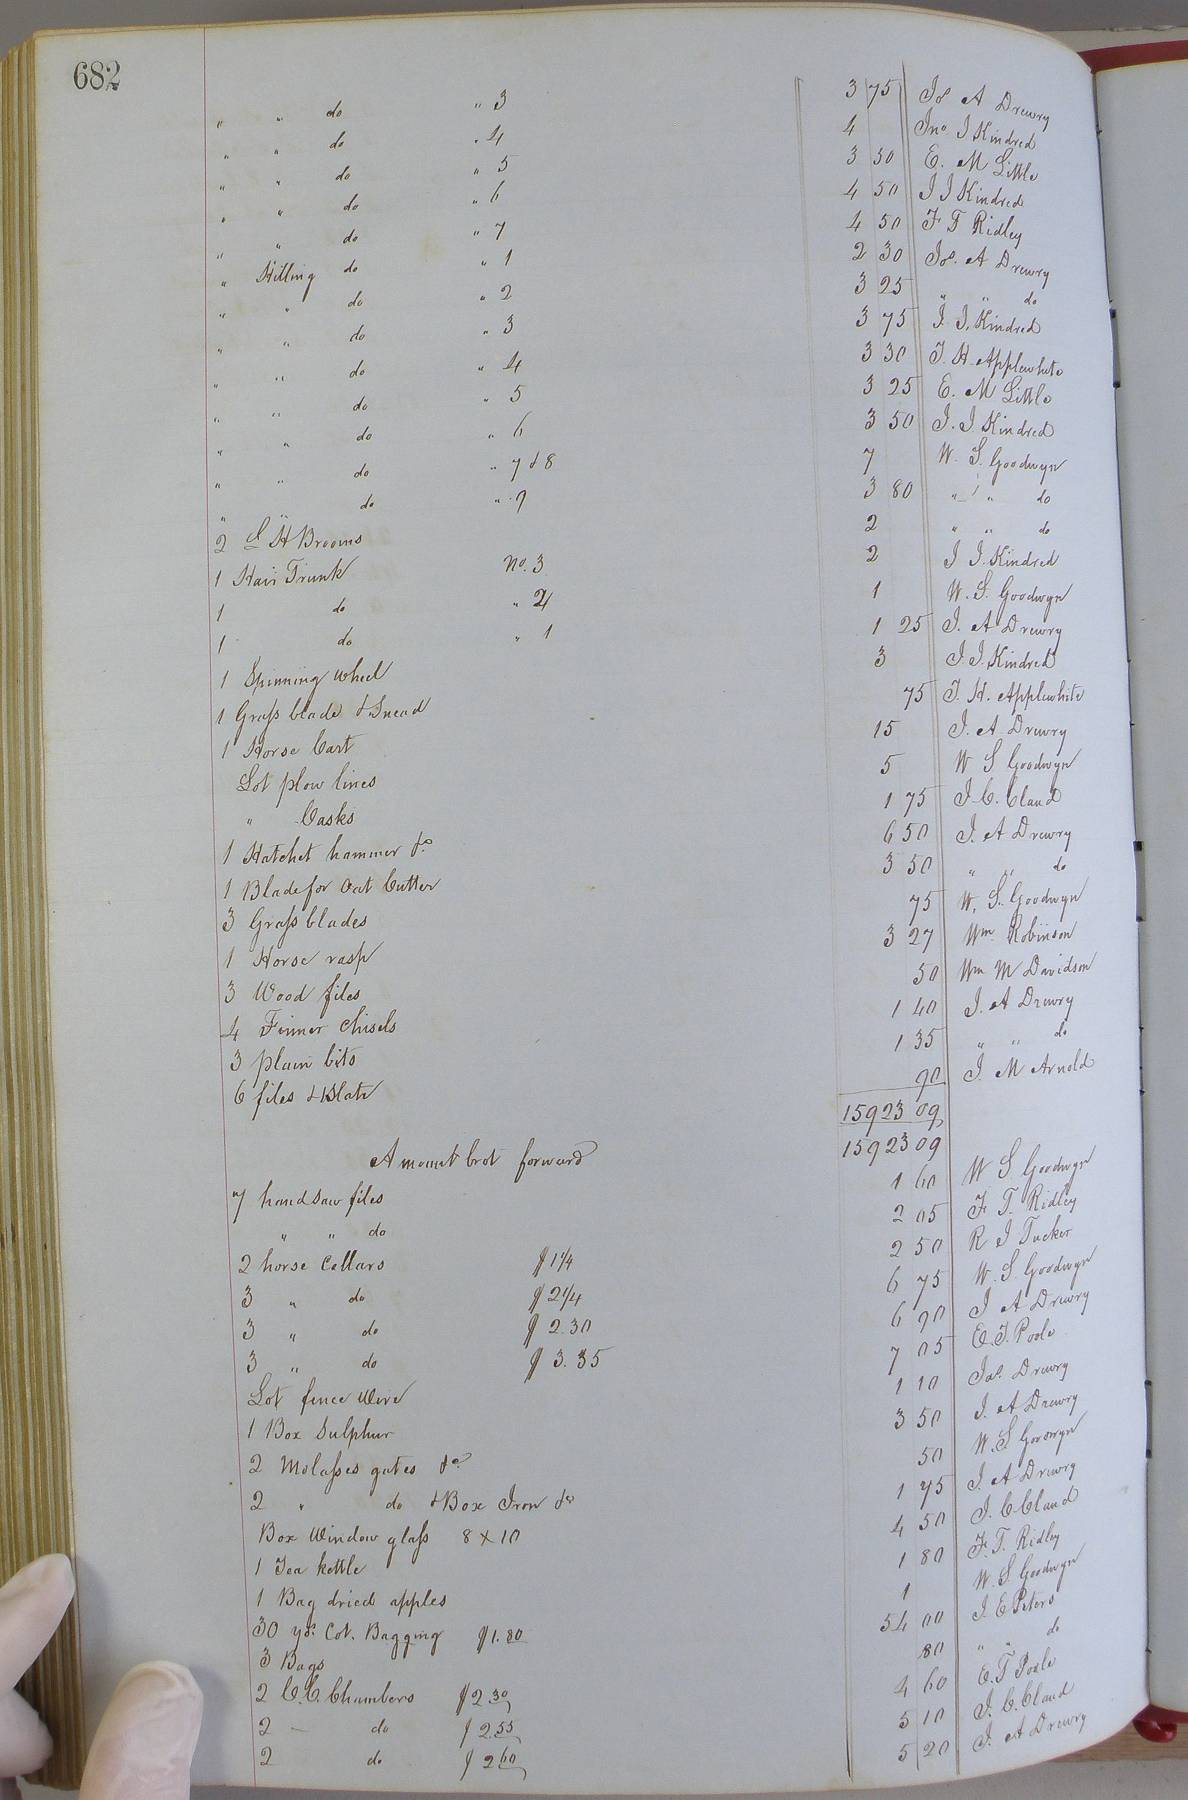 682
" " do " 3 3 75 Js A Drewry
" " do " 4 4 Jno J Kindred
" " do " 5 3 50 E. M Little
" " do " 6 4 50 J J Kindred
" " do " 7 4 50 F T Ridley
" Hilling do " 1 2 30 Js. A Drewry
" " do " 2 3 25 " " do
" " do " 3 3 75 J. J. Kindred
" " do " 4 3 30 J. H. Applewhite
" " do " 5 3 25 E. M Little
" " do " 6 3 50 J. J Kindred
" " do " 7 & 8 7 W. S. Goodwyn
" " do " 9 3 80 " " do
2 S H Brooms 2 " " do
1 Hair Trunk No. 3 2 J J. Kindred
1 do " 2 1 W. S. Goodwyn
1 do " 1 1 25 J. A Drewry
1 Spinning wheel 3 J. J. Kindred
1 Grass blade & Snead 75 J. H. Applewhite
1 Horse Cart 15 J. A Drewry
Lot plow lines 5 W S Goodwyn
" Casks 1 75 J. C. Claud
1 Hatchet hammer &c 6 50 J. A Drewry
1 Blade for Oat Cutter 3 50 " " do
3 Grass blades 75 W. S. Goodwyn
1 Horse rasp 3 27 Wm Robinson
3 Wood files 50 Wm M Davidson
4 Firmer Chisels 1 40 J. A Drewry
3 plain bits 1 35 " " do
6 files & Slate 90 J. M Arnold
15923 09
Amount brot forward 15923 09
7 handsaw files 1 60 W S Goodwyn
" " do 2 05 F. T. Ridley
2 horse Collars $1 1/4 2 50 R J Tucker
3 " do $2 1/4 6 75 W. S. Goodwyn
3 " do $2.30 6 90 J A Drewry
3 " do $3.35 7 05 E. T. Poole
Lot fence wire 1 10 Jas. Drewry
1 Box Sulphur 3 50 J. A Drewry
2 Molasses gates &c 50 W. S Goodwyn
2 " do & Box Iron &c 1 75 J. A Drewry
Box Window glass 8 x 10 4 50 J. C. Claud
1 Tea kettle 1 80 F. T. Ridley
1 Bag dried apples 1 W. S. Goodwyn
30 yds Cot. Bagging $1.80 54 00 J. E Peters
3 Bags 80 " " do
2 C. C. Chambers $2.30 4 60 E. T Poole
2 - do $2.55 5 10 J. C. Claud
2 do $2 60 5 20 J. A Drewry